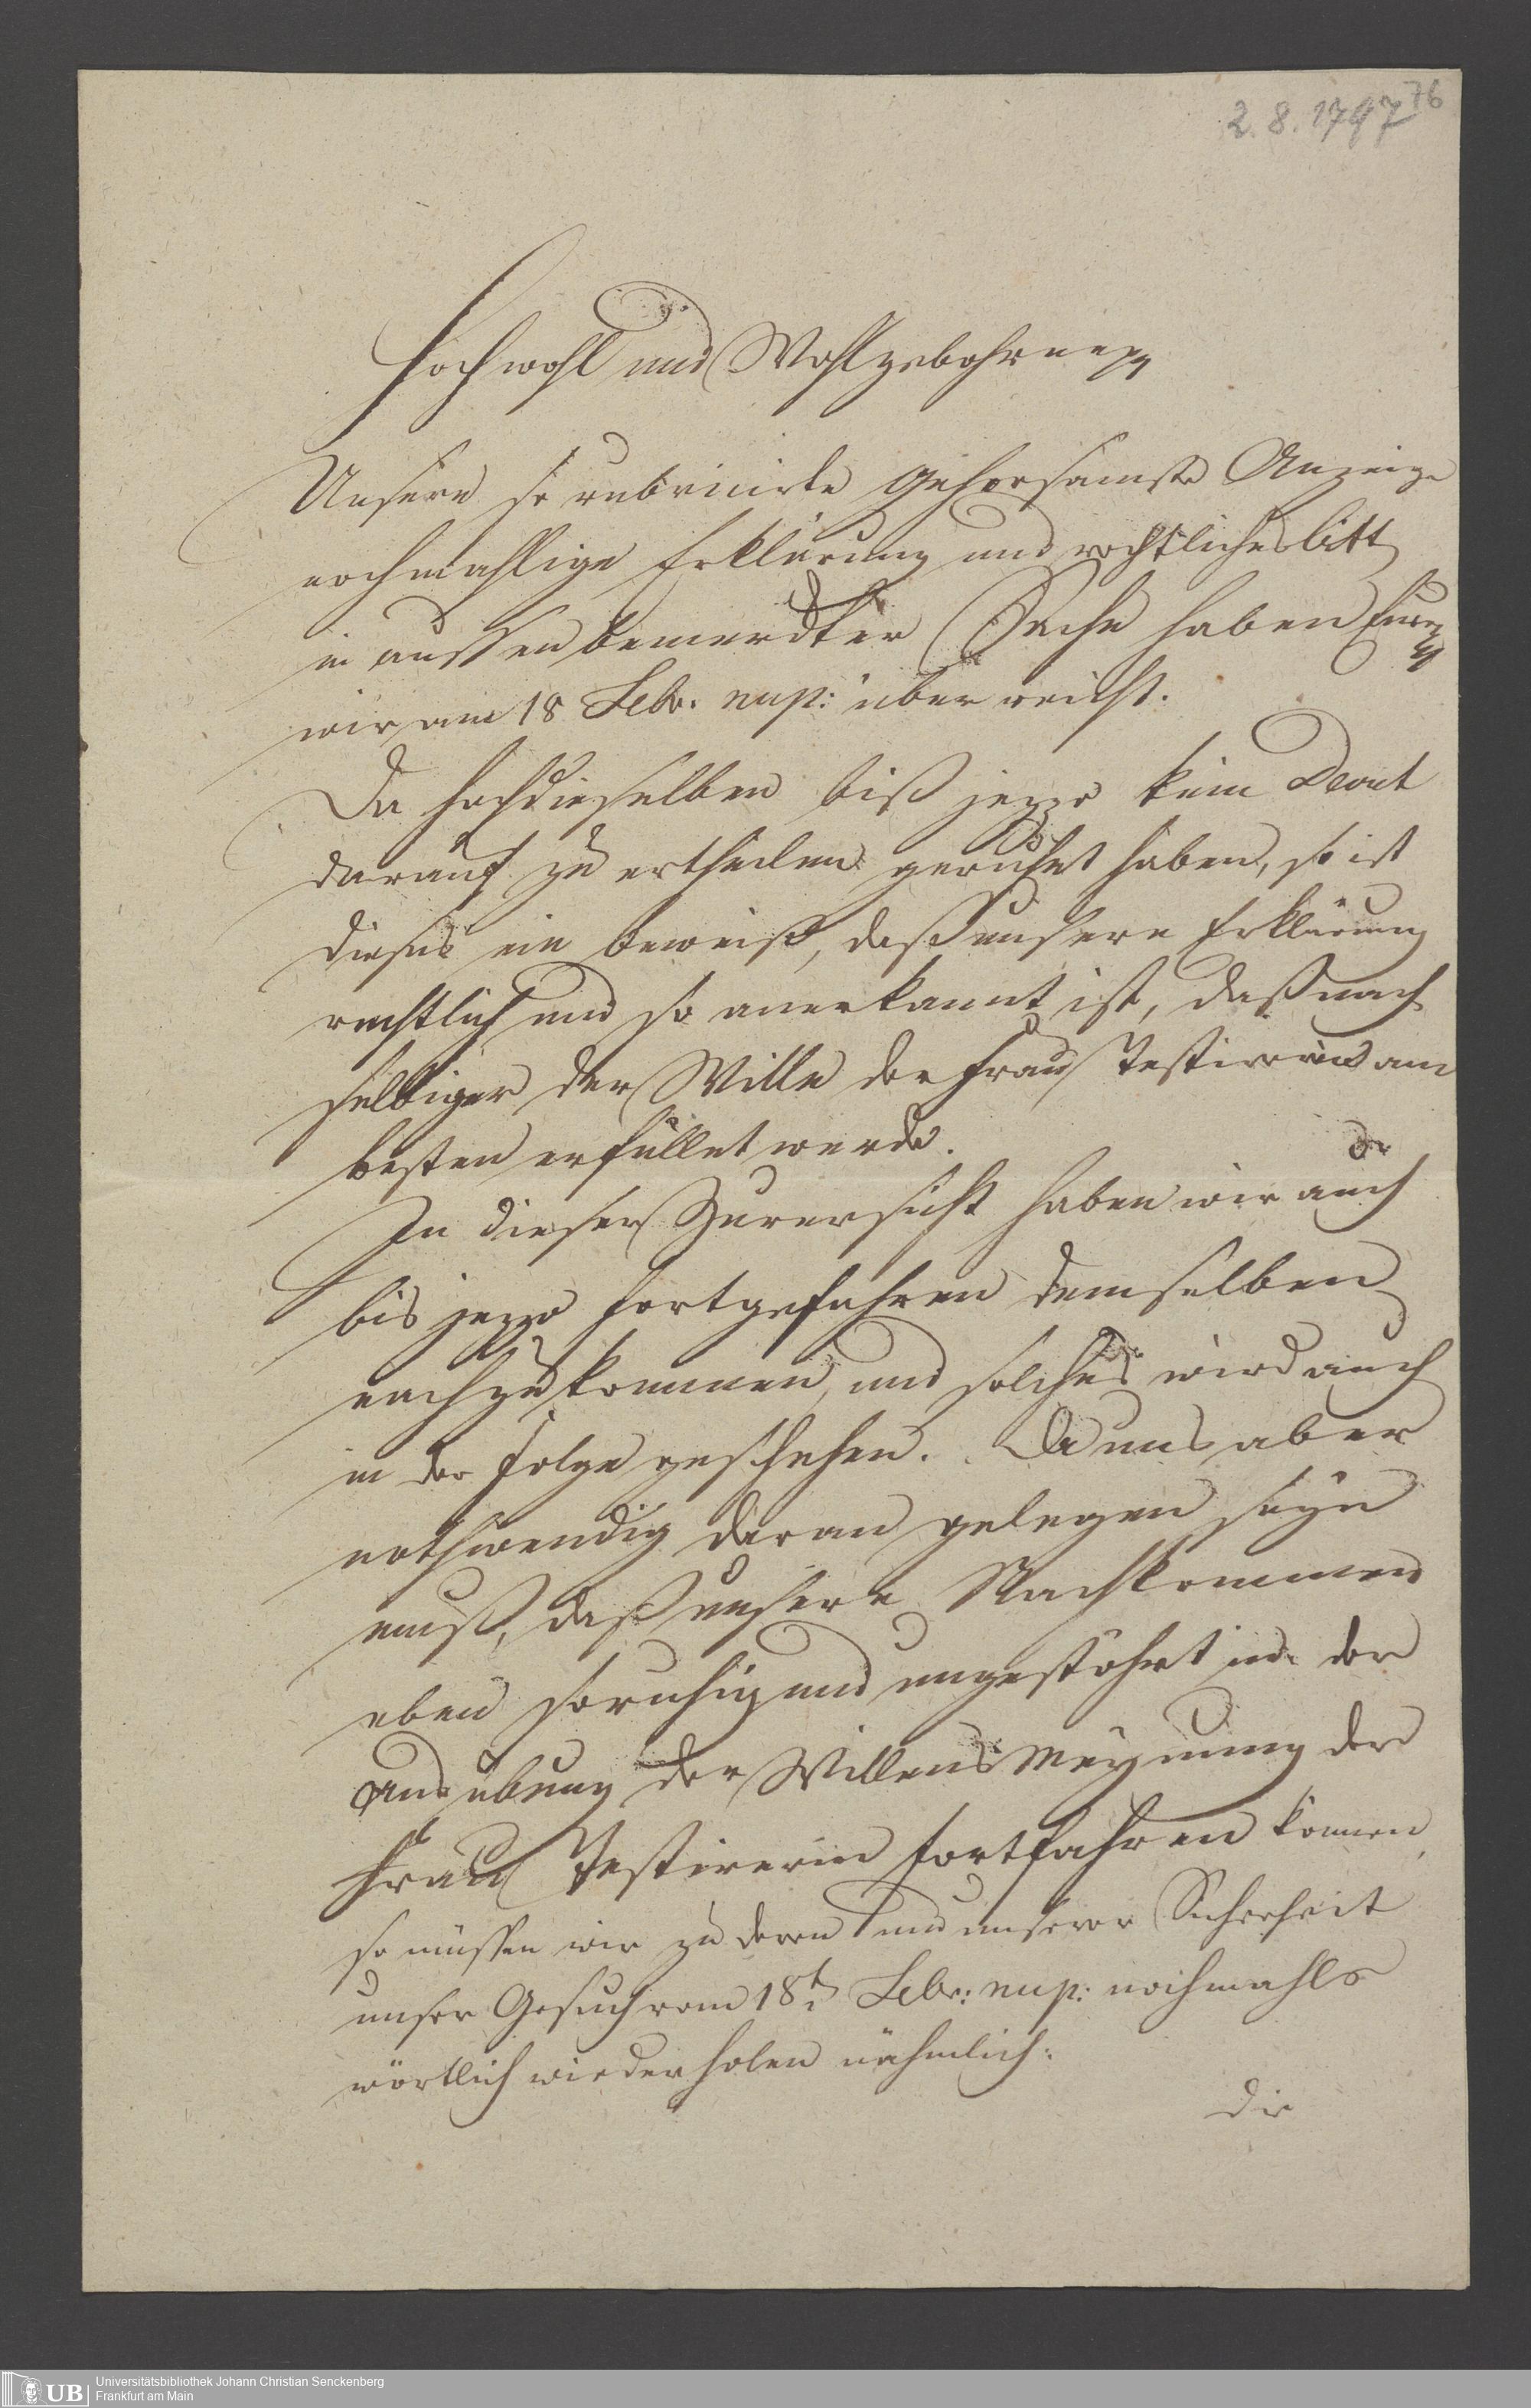 76
2.8.1797
Hochwohl und Wohlgebohrne pp
Unsere so rubricirte gehorsamste Anzeige
nochmahlige Erklärung und rechtliches bitt
in aussen bemerckter Sache haben Eure pp
wir am 18 Febr. nup: überreicht.
Da hochdieselben biß jezzo kein Decret
darauf zu ertheilen geruhet haben, so ist
dieses ein beweiß, daß unsere Erklärung
rechtlich und so anerkannt ist, daß nach
selbiger der Wille der Frau Testirerin am
besten erfüllet werde.
In dieser Zuversicht haben wir auch
bis jezzo fortgefahren demselben
nachzukommen, und solches wird auch
in der Folge geschehen. Da uns aber
nothwendig daran gelegen seyn
muß, daß unsere Nachkommen
eben so ruhig und ungestöhrt in der
Ausübung der Willens Meynung der
Frau Testirerin fortfahren können,
so müssen wir zu deren und unserer Sicherheit
unser Gesuch vom 18t Febr: nup: nochmahls
wörtlich wiederholen nähmlich:
Die
UB
Universitätsbibliothek Johann Christian Senckenberg
Frankfurt am Main